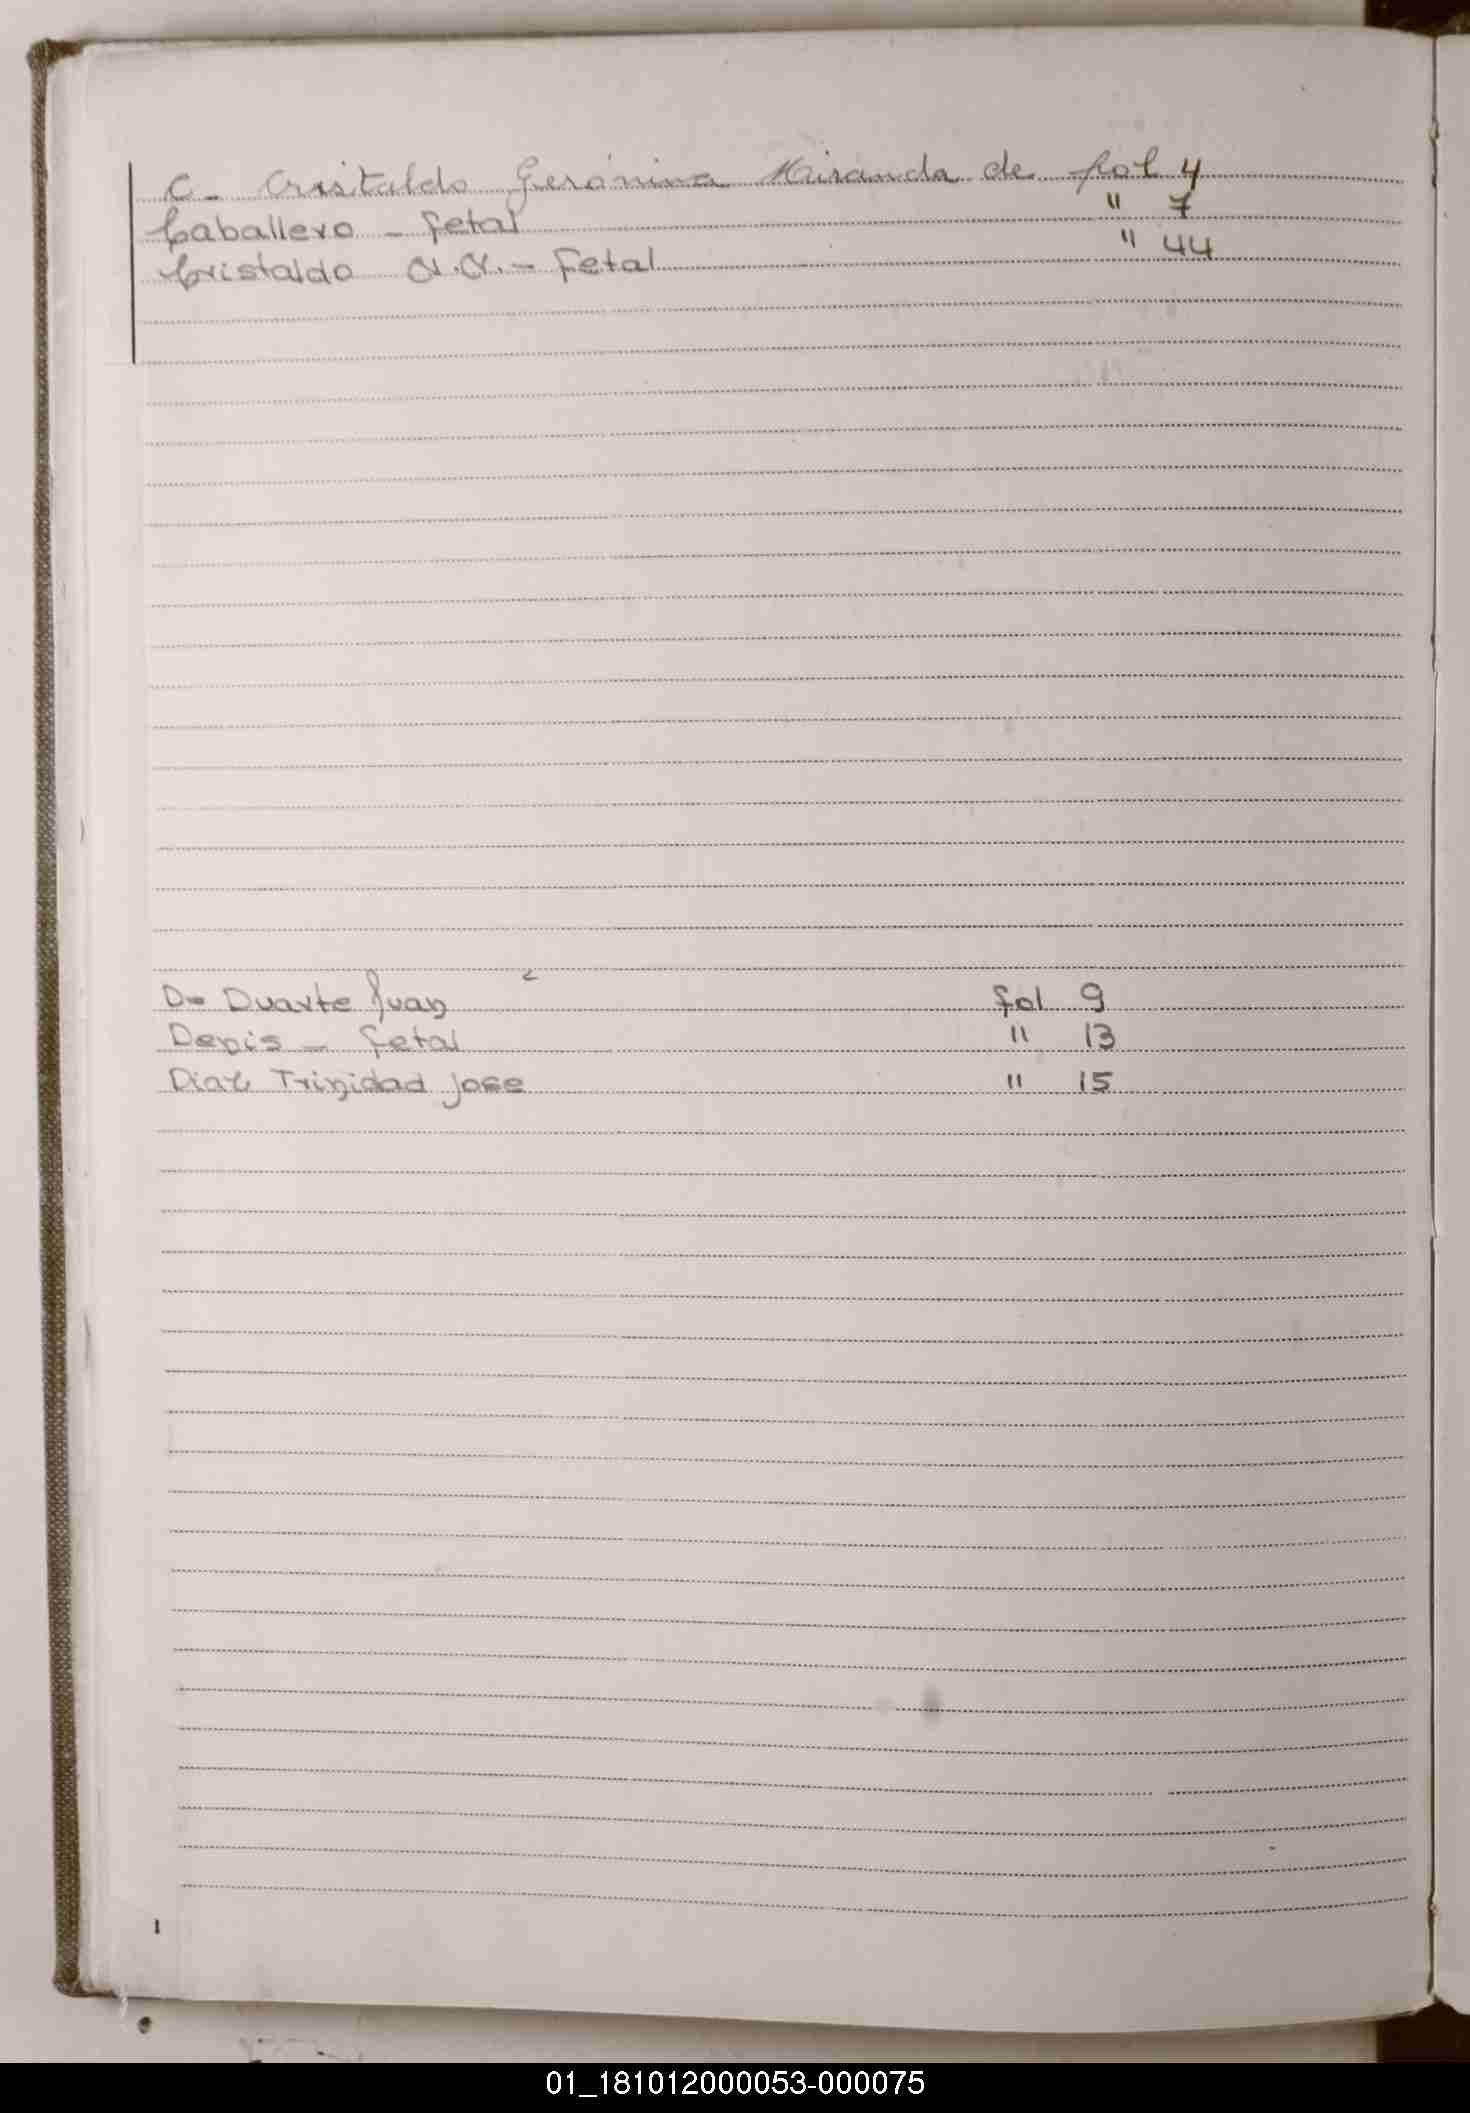 C - Cristaldo Gerónima Miranda de fol 4
Caballero - fetal " 7
Cristaldo N.N. - Fetal " 44
D- Duarte Juan fol 9
Denis - fetal " 13
Diaz Trinidad Jose " 15
01_181012000053-000075